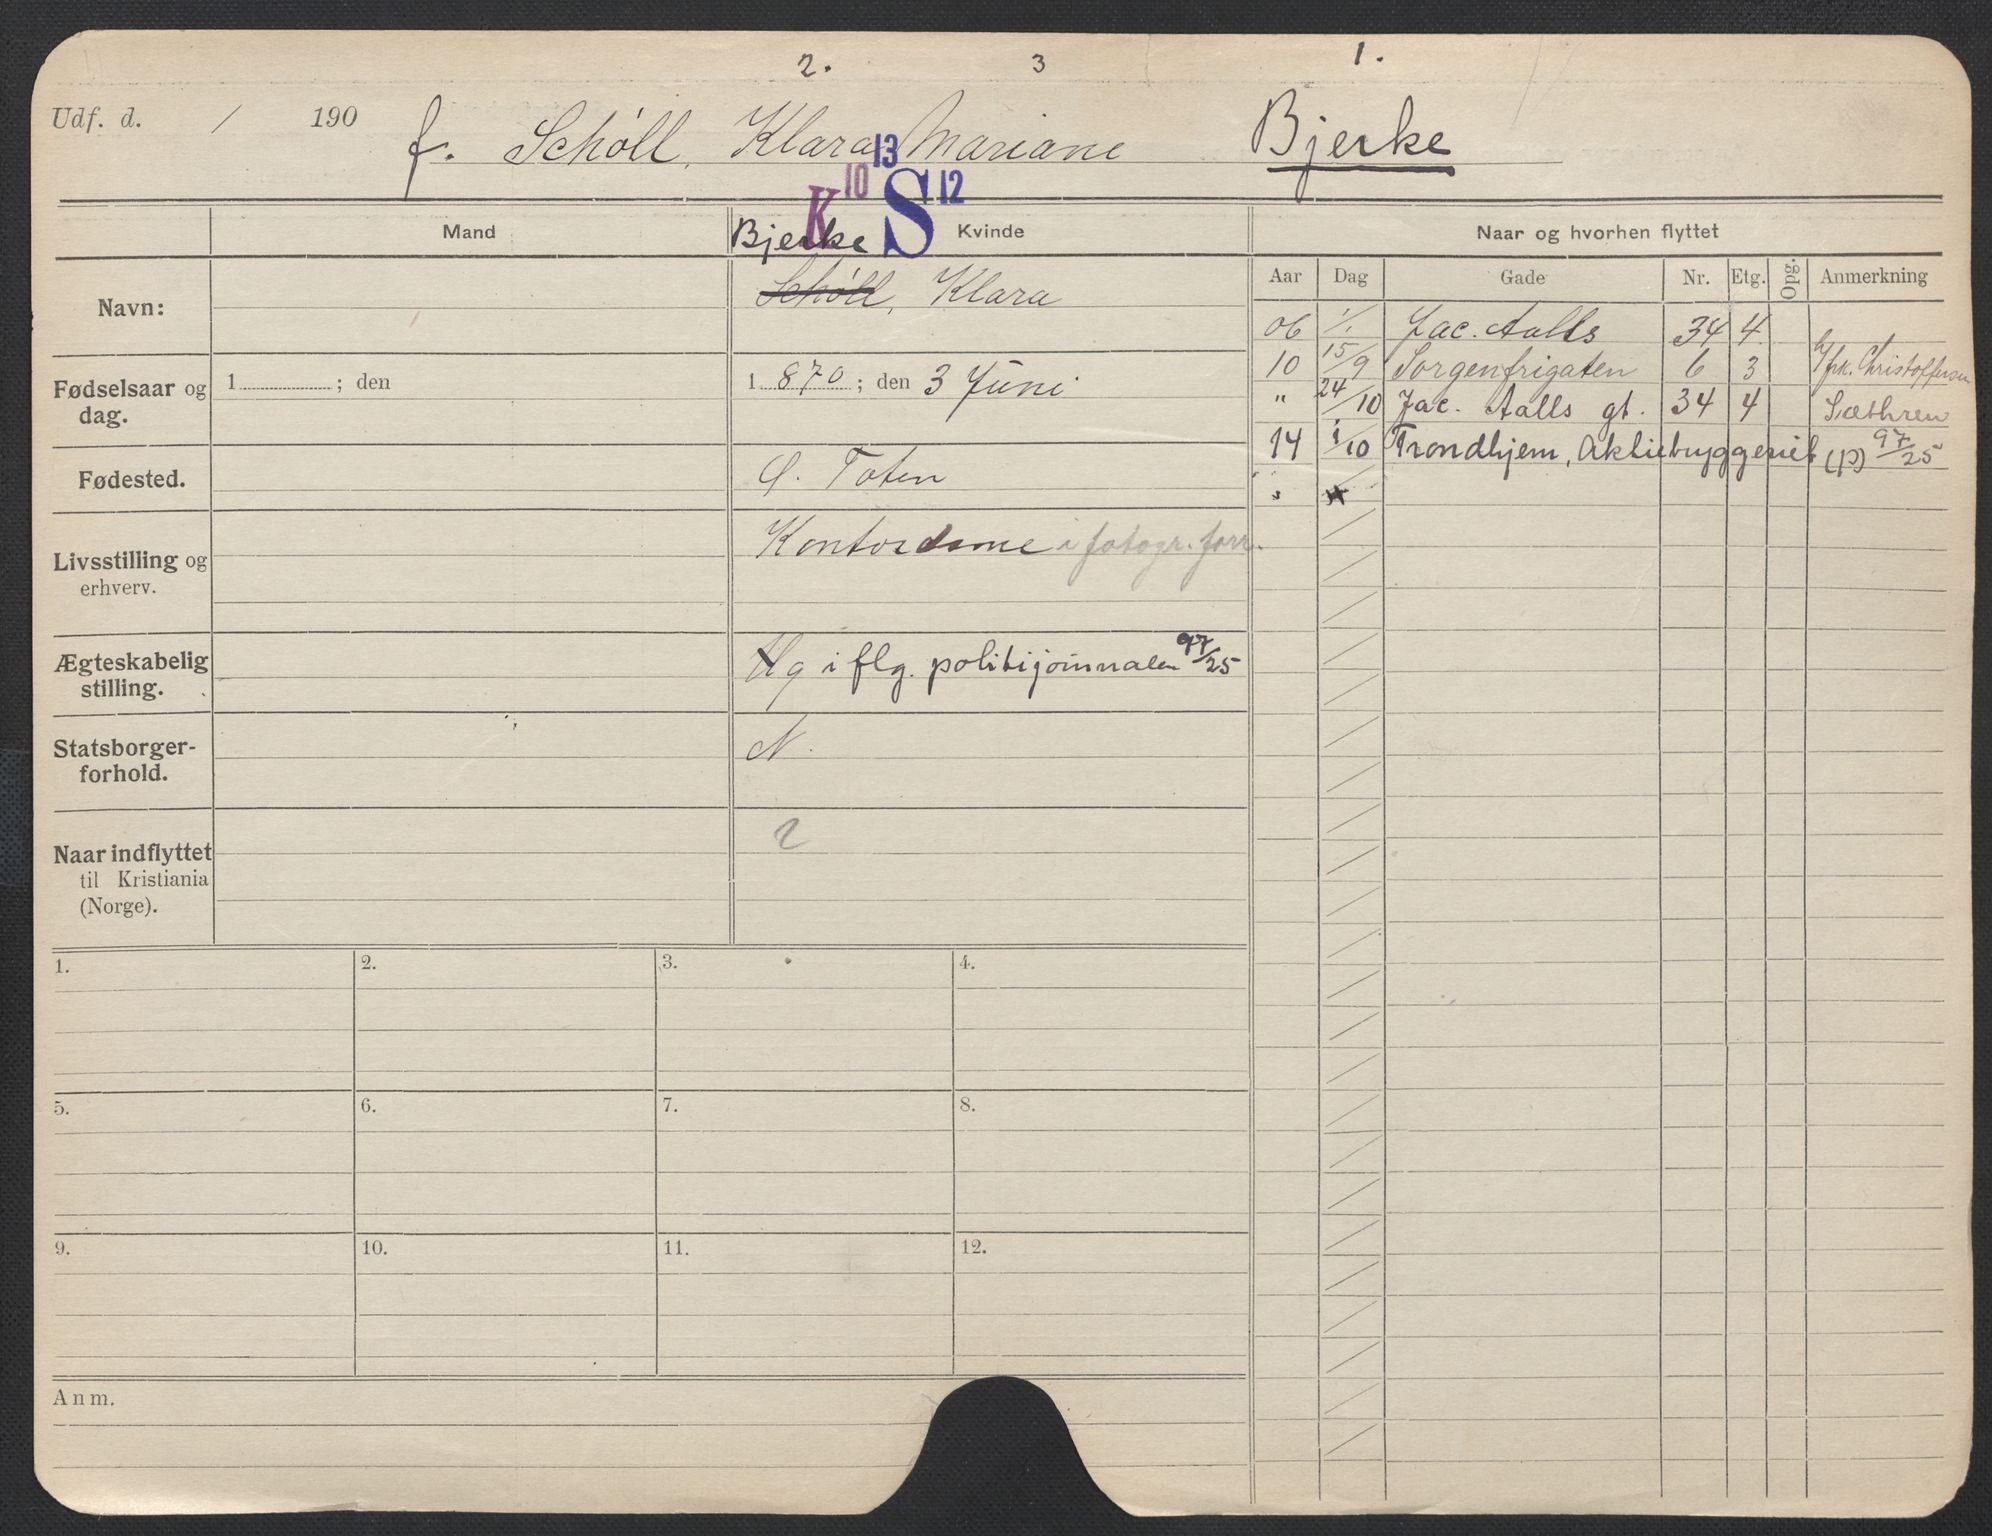 2. 3 1.
Udf. d. / 190 f. Schøll, Klara Mariane Bjerke
13
K 10 S 12
Mand Bjerke Kvinde Naar og hvorhen flyttet
Aar Dag Gade Nr. Etg. Opg. Anmerkning
Navn: Schøll, Klara
06 1/1 Jac. Aalls 34 4
10 15/9 Sorgenfrigaten 6 3 Christoffersen
Fødselsaar og dag. 1 ; den 1 870 ; den 3 Juni
" 24/10 Jac. Aalls gt. 34 4 Sæthren
14 1/10 Trondhjem, Aktiebryggeriet (p) 97/25
Fødested. Ø. Toten
Livsstilling og erhverv. Kontordame i fotogr. forr.
Ægteskabelig stilling. Ug i flg. politijournalen 97/25
Statsborger-
forhold. N.
Naar indflyttet
til Kristiania
(Norge). 2
1. 2. 3. 4.
5. 6. 7. 8.
9. 10. 11. 12.
Anm.